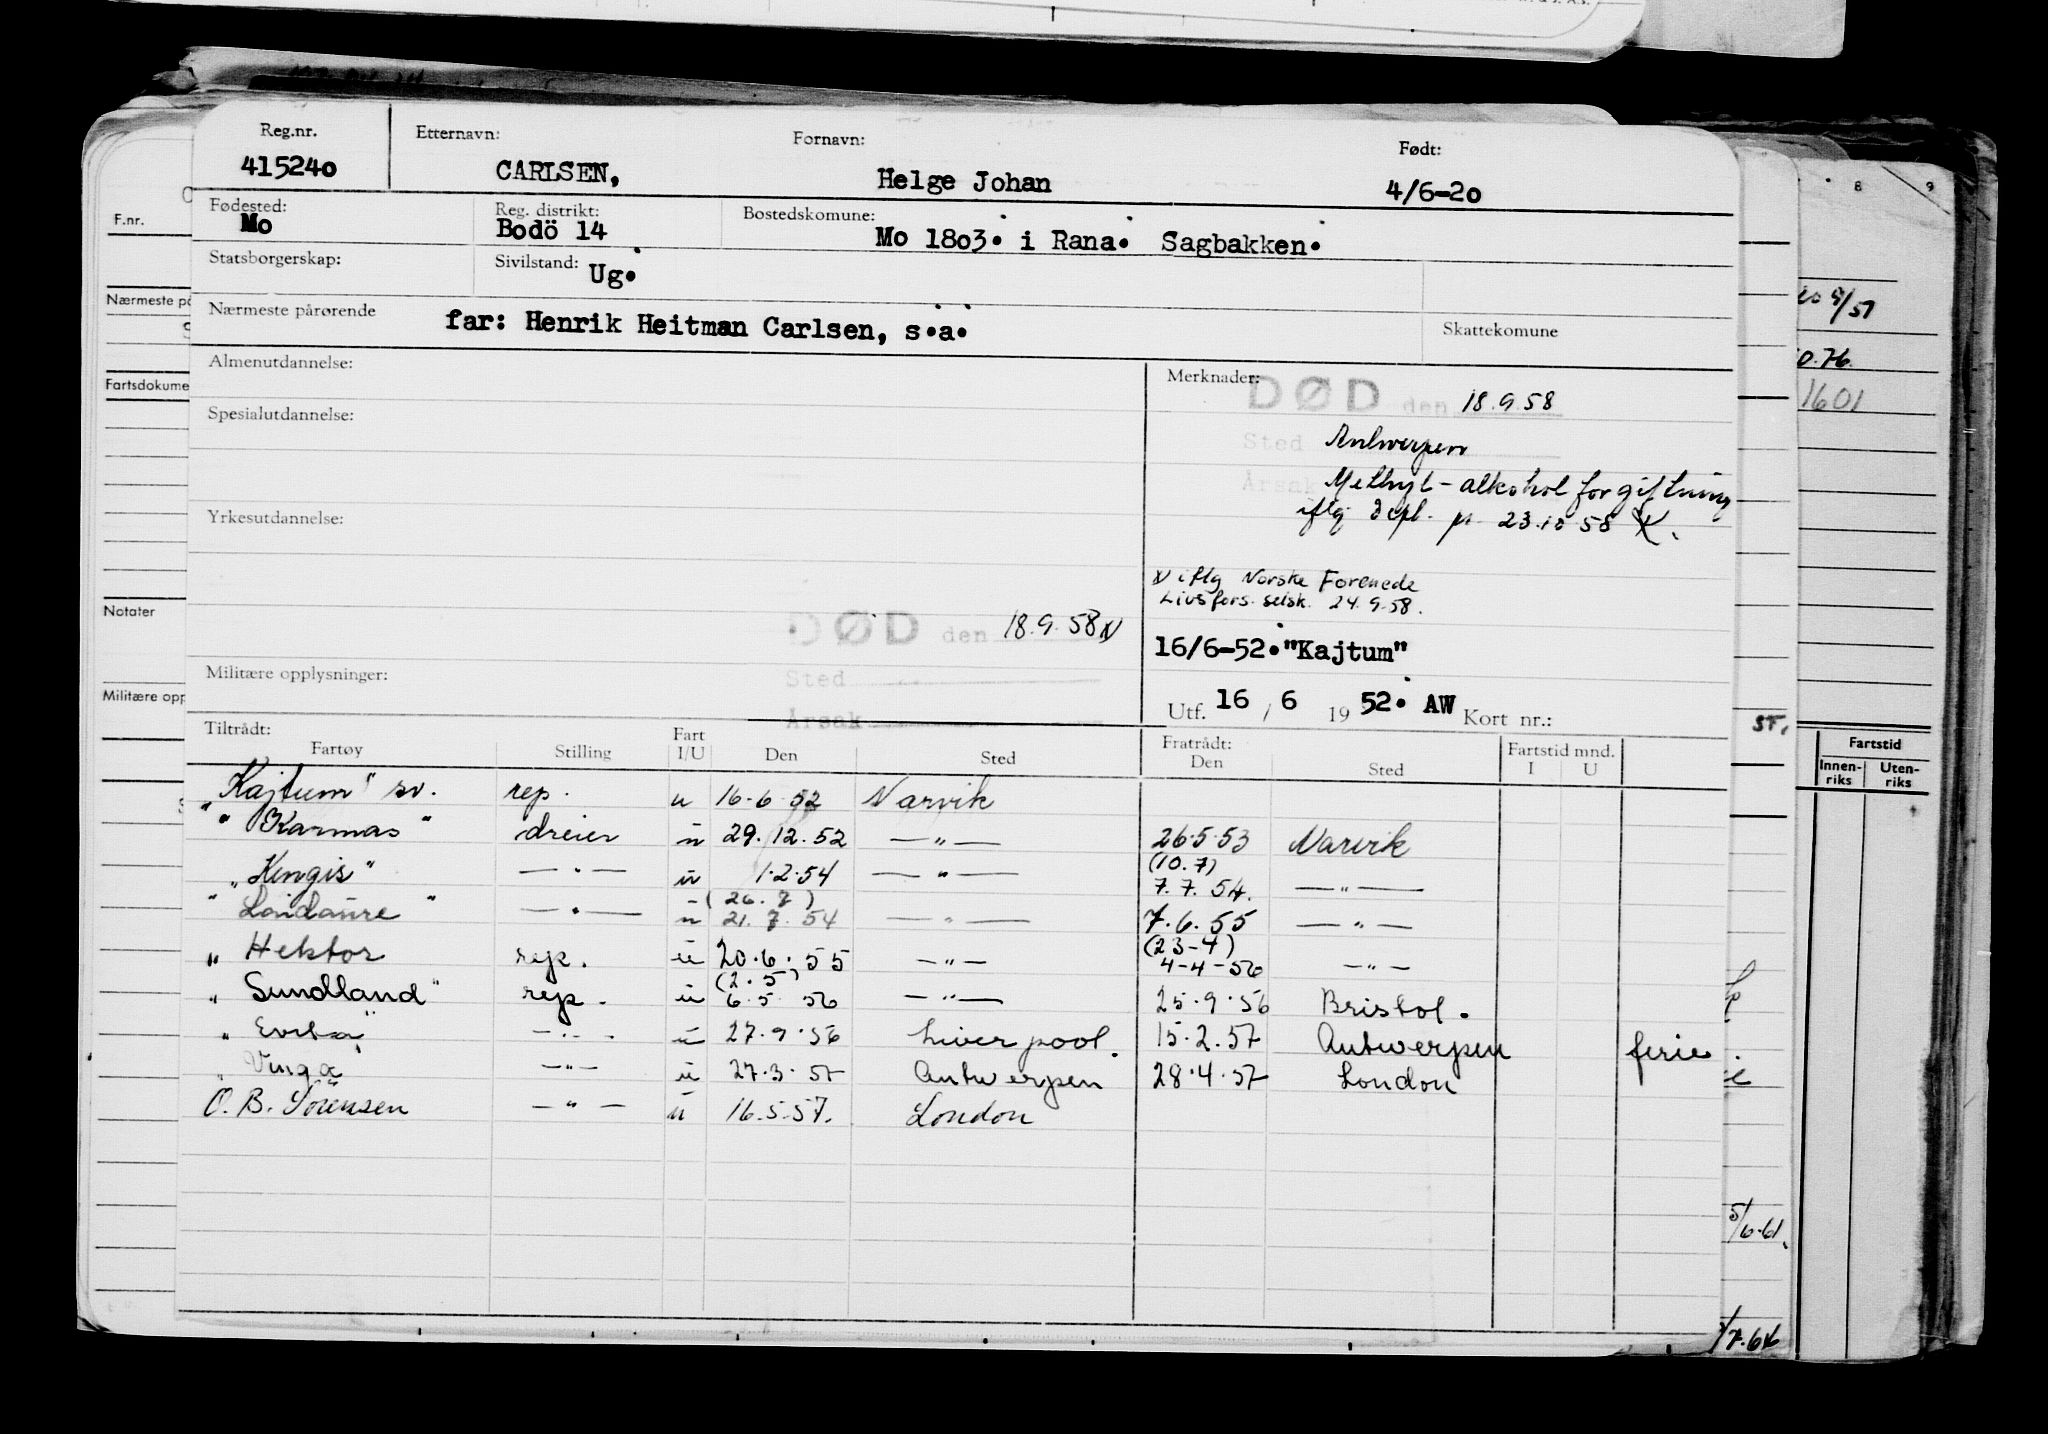 Reg.nr. Etternavn: Fornavn: Født:
415240 CARLSEN, Helge Johan 4/6-20
Fødested: Reg. distrikt: Bostedskomune:
Mo Bodö 14 Mo 1803. i Rana. Sagbakken.
Statsborgerskap: Sivilstand: Ug.
Nærmeste pårørende far: Henrik Heitman Carlsen, s.a. Skattekomune
Almenutdannelse: Merknader:
DØD den 18.9.58
Spesialutdannelse:
Sted Antwerpen
Årsak Methyl-alkohol forgiftning
iflg 23.10.58
Yrkesutdannelse:
x iflg Norske Forenede
Livsfors. selsk. 24.9.58.
DØD den 18.9.58 x
16/6-52."Kajtum"
Militære opplysninger:
Sted
Årsak
Utf. 16/6 1952. AW Kort nr.:
Tiltrådt: Fratrådt:
Fartøy Stilling Fart I/U Den Sted Den Sted Fartstid mnd. I U
"Kajtum" sv. rep. u 16.6.52 Narvik
" Karmas " dreier u 29.12.52 —"— 26.5.53 Narvik
(10.7)
"Kengis" —"— u 1.2.54 —"— 7.7.54. —"—
(26.7)
" Laidaure " —"— u 21.7.54 —"— 7.6.55 —"—
(23-4)
" Hektor rep. u 20.6.55 —"— 4-4-56 —"—
(2.5)
" Sundland" rep. u 6.5.56 —"— 25.9.56 Bristol.
" Evita" —"— u 27.9.56 Liverpool. 15.2.57 Antwerpen ferie.
" Vinga —"— u 27.3.57 Antwerpen 28.4.57 London
O. B. Sörensen —"— u 16.5.57. London
F.nr.
Nærmeste på
Fartsdokume
Notater
Militære opp
8 9
5/51
0.76.
1601
ST.
Fartstid
Innen-riks Uten-riks
5/6.61.
7.66